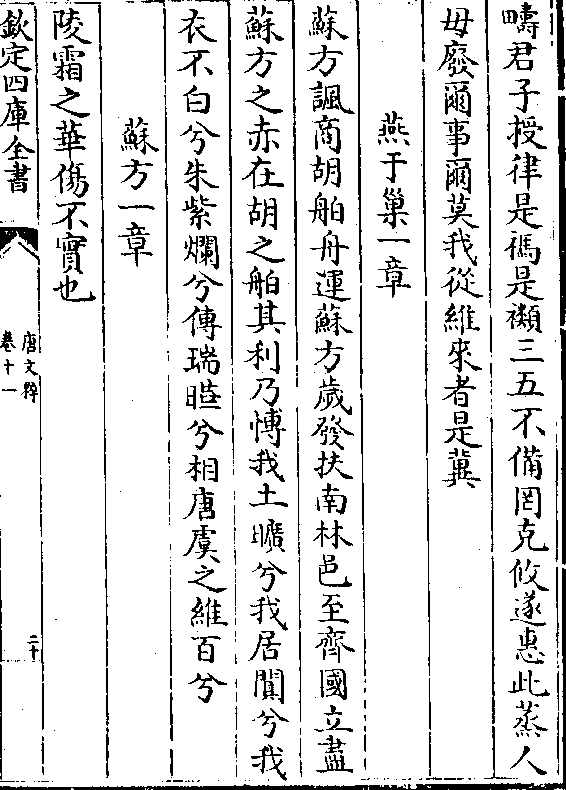 疇君子授律是禡是禷三五不備罔克攸遂惠此蒸人
毋廢爾事爾莫我從維來者是冀
燕于巢一章
蘇方諷商胡舶舟運蘇方歲發扶南林邑至齊國立盡
蘇方之赤在胡之舶其利乃愽我土曠兮我居闐兮我
衣不白兮朱紫爛兮傳瑞曄兮相唐虞之維百兮
蘇方一章
陵霜之華傷不實也
欽定四庫全書
唐文粹
卷十一
二十